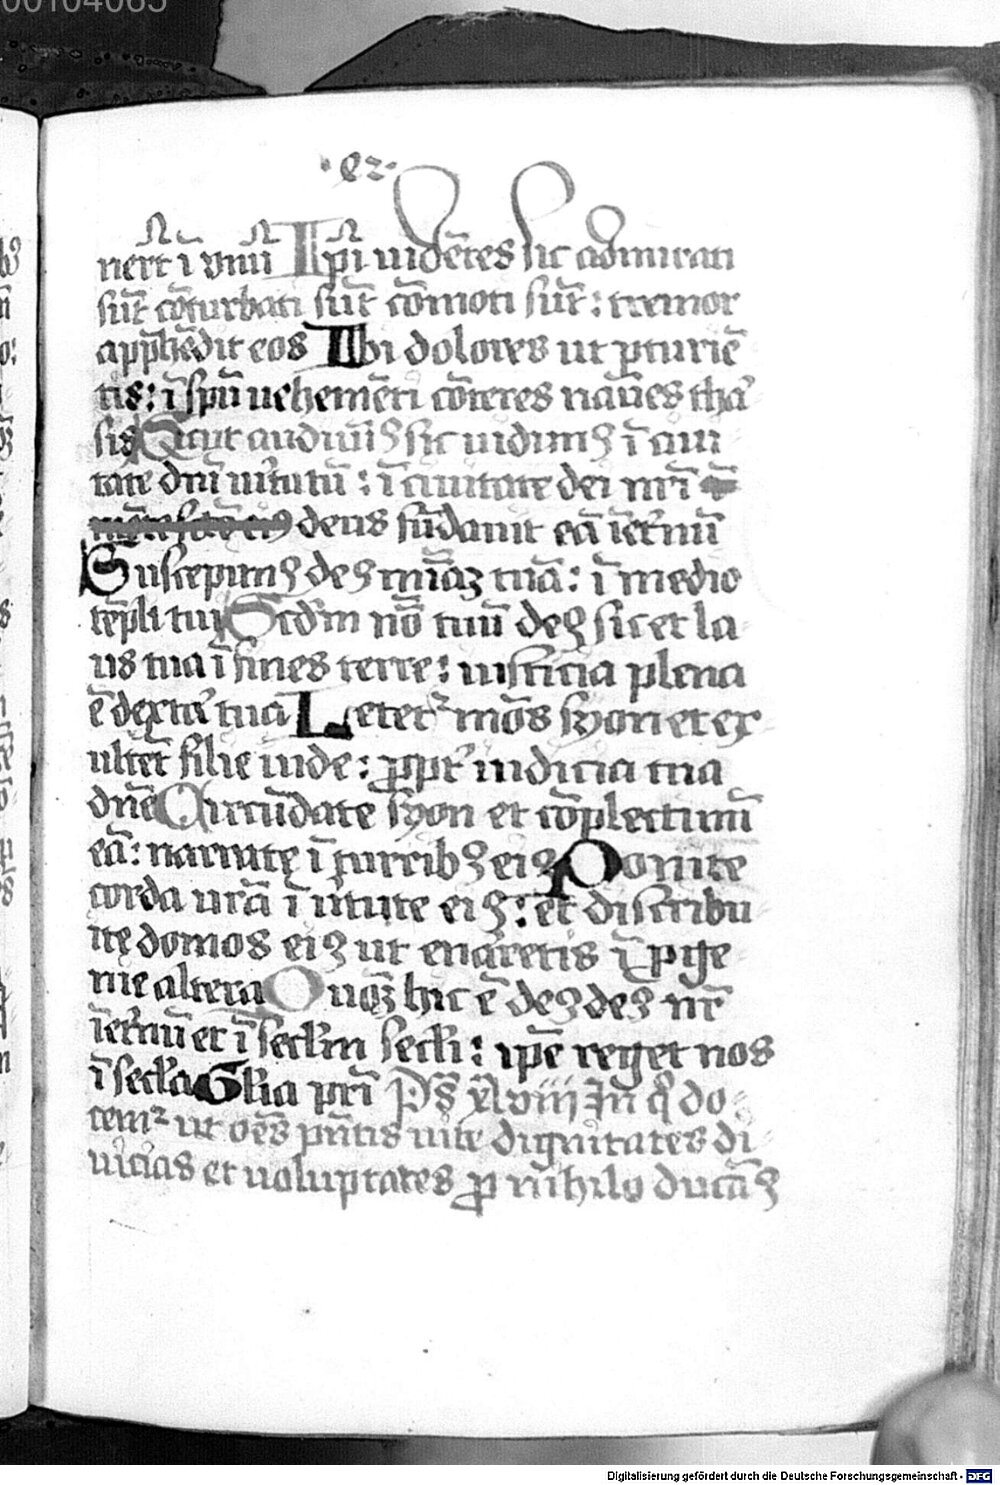 00104065
·ez·
nert̄ ī vnū Ipī uidētes sic admirati
sūt cōturbati sūt cōmoti sūt: tremor
app̄hēdit eos Ibi dolores ut pturiē
tis: ī spū uehemēti cōteres naūes tha
sis Sicut audiuīꝰ sic uidimꝰ ī ciui
tate dnī uirtutū: ī ciuitate dei nr̄i ī
mōte sctō eiꝰ deus fūdauit eā īet̄nū
Suscepimꝰ deꝰ mīaꝫ tuā: ī medio
tēpli tui Scd̄m nō tuū deꝰ sic et la
us tua ī fines terre: iusticia plena
ē dextera tua Letet᷑ mōs syon et ex
ultēt filie iude: ꝓpt̄ iudicia tua
dn̄e Circūdate syon et cōplectimī
eā: narrate ī turribꝰ eiꝰ Ponite
corda ur̄a ī uirtute eiꝰ: et distribu
ite domos eiꝰ ut enaretis ī pge
nie altera Quoꝫ hic ē deꝰ deꝰ nr̄
īet̄nū et ī sec̄lm sec̄li: ip̄e reget nos
ī sec̄la Gl̄ia pr̄i Ps̄ xlviii In q̊ do
cem᷑ ut oēs pn̄tis uite dignitates di
uicias et uoluptates ꝓ nihilo ducāꝰ
Digitalisierung gefördert durch die Deutsche Forschungsgemeinschaft - DFG